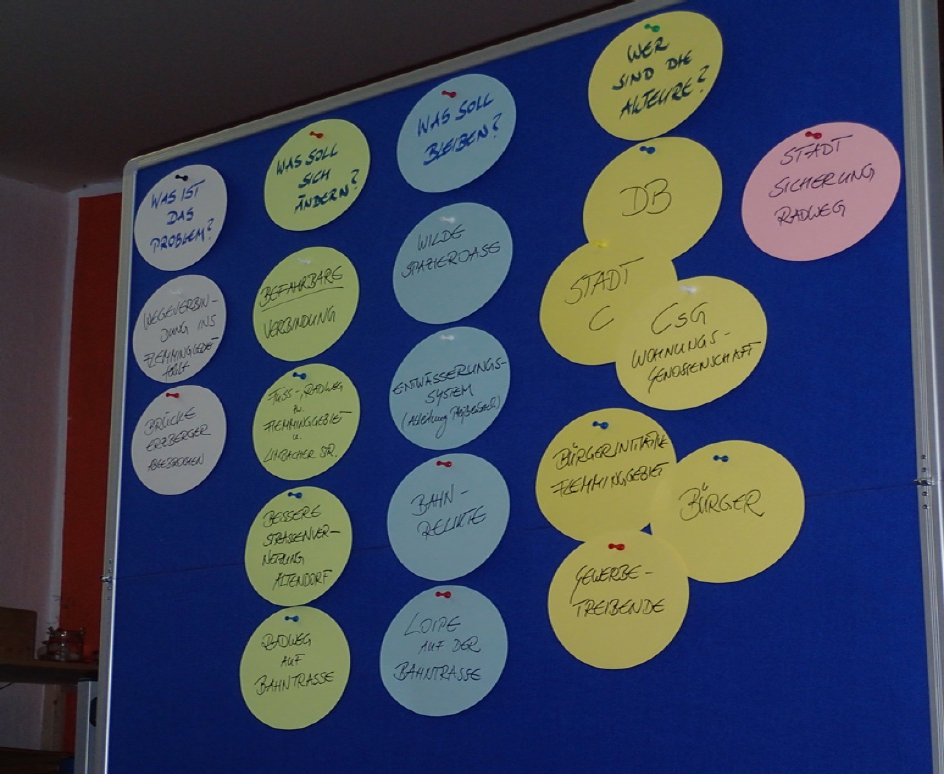 WAS IST
DAS
PROBLEM?
WEGEVERBIN-
DUNG INS
FLEMMINGGEBIET
FEHLT
BRÜCKE
ERZBERGER
ABGEBROCHEN
WAS SOLL
SICH
ÄNDERN?
BEFAHRBARE
VERBINDUNG
FUSS-, RADWEG
FLEMMINGGEBIET
U.
LIMBACHER STR.
BESSERE
STRASSENVER-
NETZUNG
ALTENDORF
RADWEG
AUF
BAHNTRASSE
WAS SOLL
BLEIBEN?
WILDE
SPAZIEROASE
ENTWÄSSERUNGS-
SYSTEM
(Ableitung
BAHN-
RELIKTE
LOIPE
AUF DER
BAHNTRASSE
WER
SIND DIE
AKTEURE?
DB
STADT
C
CSG
WOHNUNGS-
GENOSSENSCHAFT
BÜRGERINITIATIVE
FLEMMINGGEBIET
BÜRGER
GEWERBE-
TREIBENDE
STADT
SICHERUNG
RADWEG